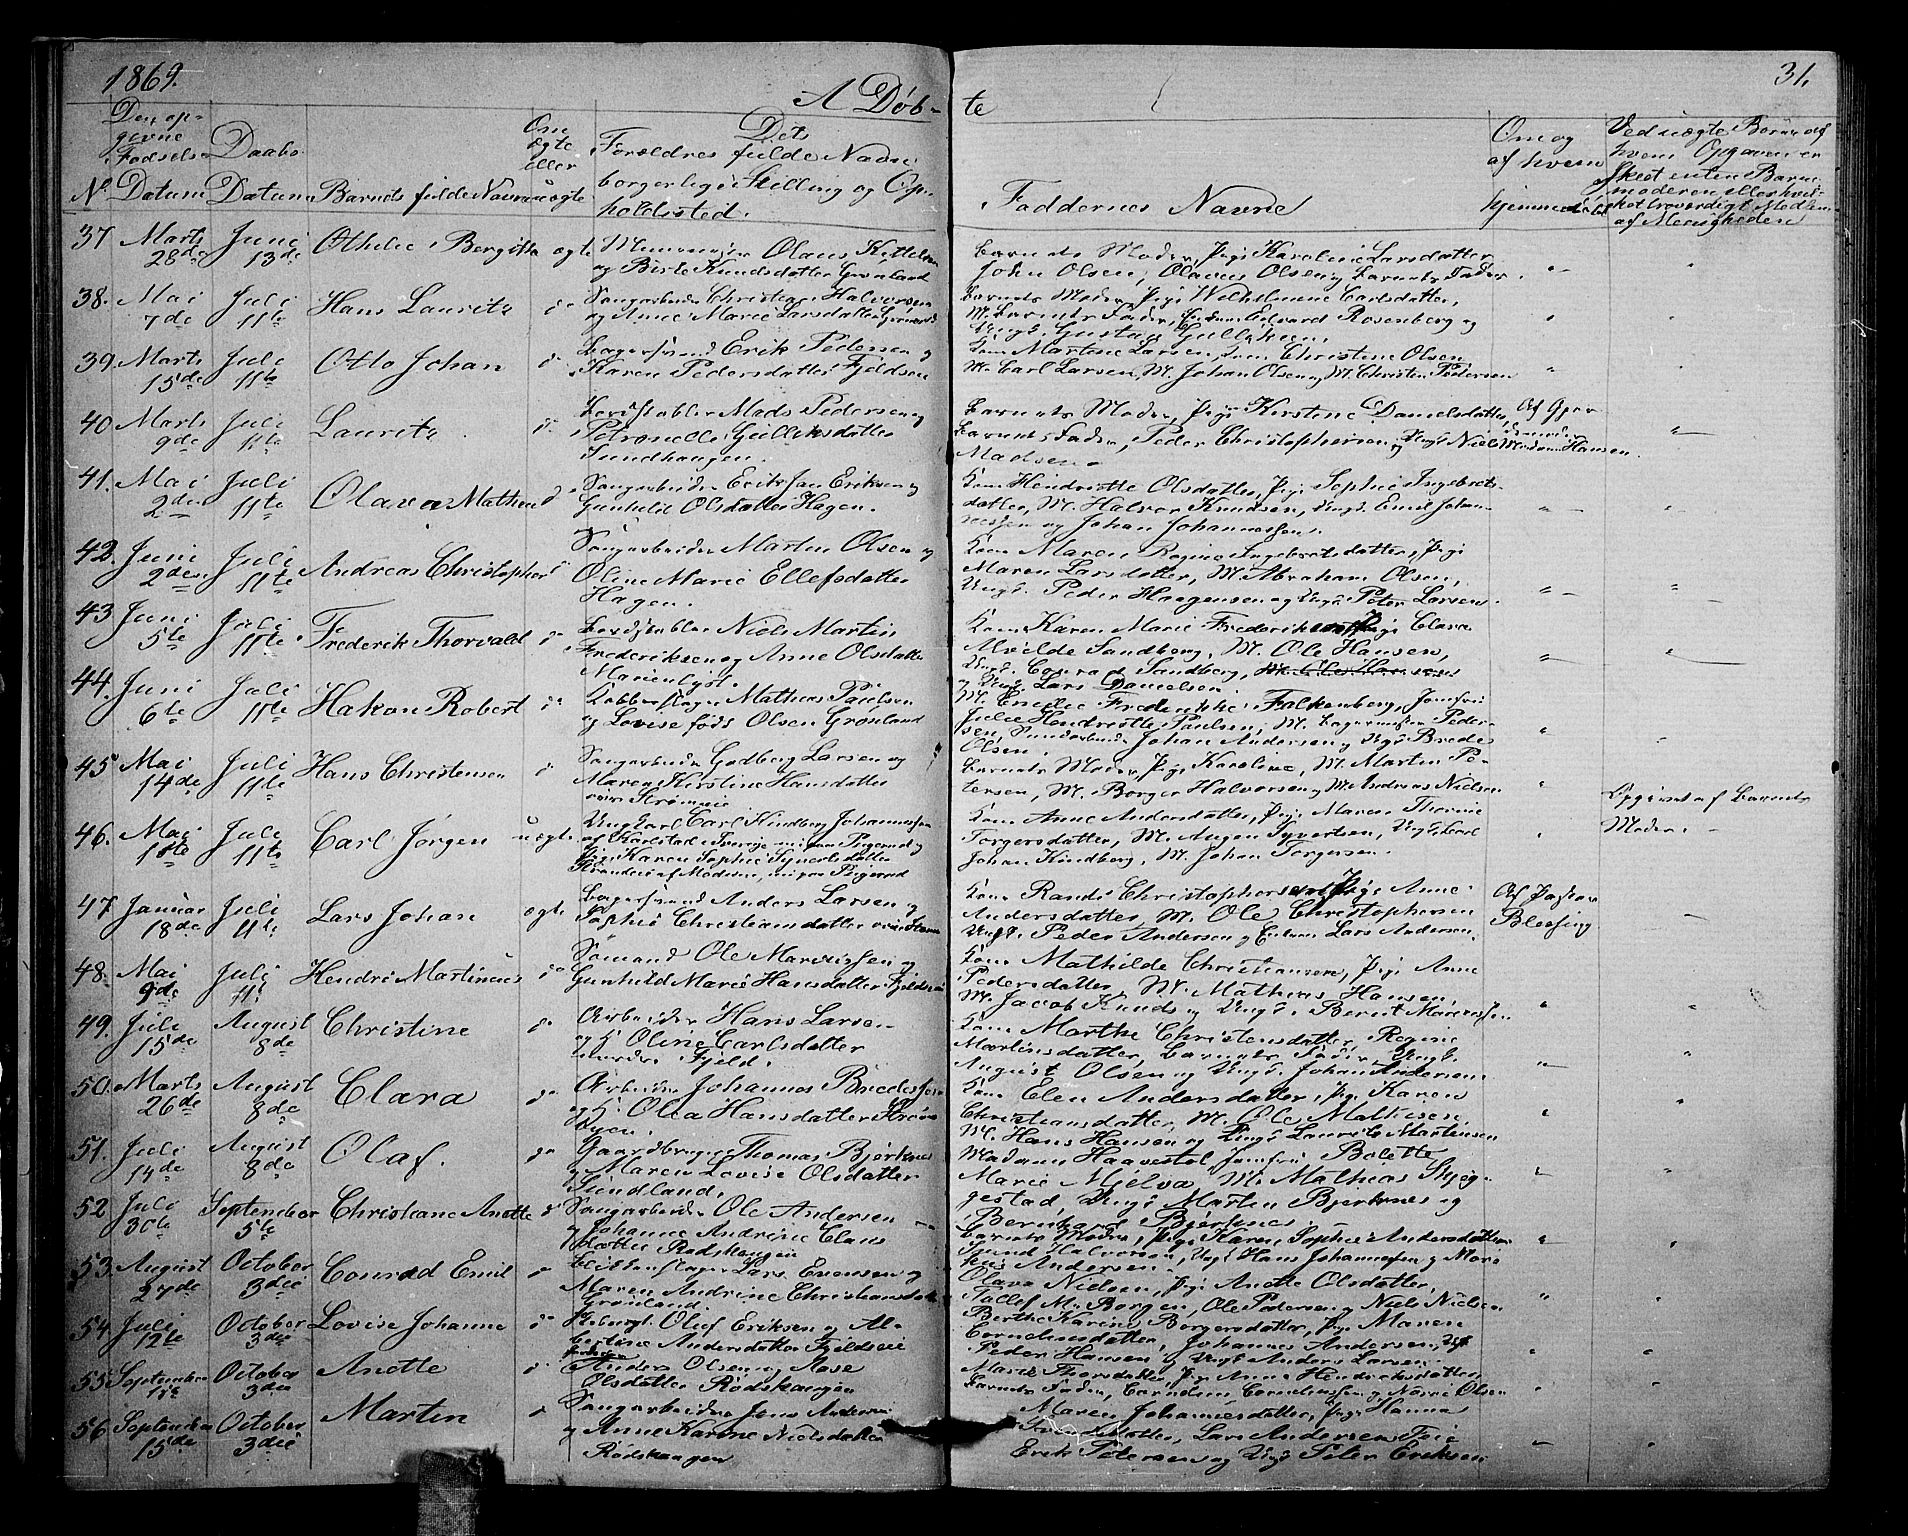 1869.
A Døb-
te
31.
Den op-
givne
Fødsels
Datum
Daabs
Datum
No
Barnets fulde Navn
Om
ægte
eller
uægte
Dets
Forældres fulde Navn
borgerlige Stilling og Op-
holdssted.
Faddernes Navne
Om og
af hvem
hjemmedøbt
Ved uægte Børn af
hvem Opgaven er
skeet enten Barne-
moderen eller hvil-
ket troværdigt Medlem
af Menigheden
37 Marts 28de Juni 13de Othilie Bergitte ægte
Olaus Kittelsen
og Birte Knudsdatter Grønland
Barnets Moder, Pige Karoline Larsdatter
Olsen, Olavus Olsen og Barnets Fader.
38. Mai 7de Juli 11te Hans Lauritz do
Saugarbeider Christian Halvorsen
og Anne Marie Larsdatter Grønland
Barnets Moder, Pige Wilhelmine Carlsdatter,
Barnets Fader, Edvard Rosenberg og
Ungk. Gustav Gulliksen.
39. Marts 15de Juli 11te Otto Johan do
Erik Pedersen og
Karen Pedersdatter Fjeldsøen
Kone Martine Larsen, Kone Christine Olsen
M. Carl Larsen, M. Johan Olsen og M. Christen Pedersen
40 Marts 9de Juli 11te Lauritz do
Bordstabler Mads Pedersen og
Petronelle Gulliksdatter
Tundhaugen.
Barnets Moder, Pige Kirstine Danielsdatter,
Barnets Fader, Peder Christophersen, Ungk Niels
Madsen.
Madam Hansen
41. Mai 2den Juli 11te Olava Mathea do
Saugarbeider Erik Jan Eriksen og
Gunhild Olsdatter Hagen.
Kone Hendrikke Olsdatter, Pige Sophie Ingebrets-
datter, M. Halvor Knudsen, Ungk. Emil Johan-
nessen og Johan Johannessen.
42. Juni 2den Juli 11te Andreas Christopher do
Saugarbeider Martin Olsen og
Oline Marie Ellefsdatter
Hagen.
Kone Maren Regine Ingebretsdatter, Pige
Maren Larsdatter, M. Abraham Olsen,
Ungk. Peder Haagensen og Ungk. Peter Larsen.
43 Juni 5te Juli 11te Frederik Thorvald do
Bordstabler Niels Martin
Frederiksen og Anne Olsdatter
Marienlyst.
Kone Karen Marie Frederiksen, Pige Clara
Alvilde Sandberg, M. Ole Hansen,
Ungk. Conrad Sandberg, M. Ole Hansen
og Ungk. Lars Danielsen.
44. Juni 6te Juli 11te Hakon Robert do
Kobberslager Mathias Paulsen
og Lovise født Olsen Grønland
M. Emilie Frederikke Falkenberg, Jomfru
Julie Hendrikke Paulsen, M. Peder
Olsen, Johan Andersen og Ungk Brede
Olsen.
45 Mai 14de Juli 11te Hans Christensen do
Saugarbeider Gudberg Larsen og
Maren Kirstine Hansdatter
Strømmen
Barnets Moder, Pige Karoline, M. Martin Pe-
tersen, M. Borger Halvorsen og M. Andreas Nielsen
46. Mai 18te Juli 11te Carl Jørgen uægte
Ungkarl Carl Kindberg Johannessen
af Karlstad i Sverige
Karen Sophie Syvertsdatter
Kone Anne Andersdatter, Pige Maren Thorine
Torgersdatter, M. Syvertsen, Ungk. Carl
Johan Kindberg, M. Johan Torgersen.
Opgivet af Barnets
Moder.
47. Januar 18de Juli 11te Lars Johan ægte
Anders Larsen og
Sophie Christiansdatter
Kone Randi Christophersen, Pige Anne
Andersdatter, M. Ole Christophersen
Ungk. Peder Andersen og Lars Andersen.
Af Pastor
Blessing.
48. Mai 9de Juli 11te Hendri Martinius do
Sømand Ole Mariussen og
Gunhild Marie Hansdatter Fjeldsøen
Kone Mathilde Christiansen, Pige Anne
Pedersdatter, M. Mathias Hansen,
M. Jacob Knuds og Ungk. Bernt Mariussen
49. Juli 15de August 8de Christine do
Arbeider Hans Larsen
og H. Oline Carlsdatter
Fjeld.
Kone Marthe Christensdatter, Regine
Martinsdatter, Barnets Fader, Ungk.
August Olsen og Ungk. Johan Andersen
50. Marts 26de August 8de Clara do
Arbeider Johannes Bredesen
og H. Olea Hansdatter Strøms-
Kone Elen Andersdatter, Pige Karen
Christiansdatter, M. Ole Mathisen
M. Hans Hansen og Ungk Laurits Martinsen
51. Juli 14de August 8de Olaf. do
Gaardbruger Thomas Bjerknes
og Maren Lovise Olsdatter
Sundland.
Madame Haavestol, Jomfru Bolette
Marie Mjelva, M. Mathias Skjeg-
gestad, Ungk Martin Bjerknes og
Bernhard Bjerknes.
52 Juli 30te September 5te Christiane Anette do
Saugarbeider Ole Andersen
og Johanne Andrine Claus-
datter Rødskougen
Barnets Moder, Pige Karen Sophie Andersdatter
Halvorsen, Ungk Hans Johannessen og Mari-
kus Andersen.
53. August 27de October 3die Conrad Emil do
Blikkenslager Lars Evensen og
Maren Andrine Christiansdatter
Grønland.
Olava Nielsen, Pige Anette Olsdatter,
Tollef M. Borgen, Ole Pedersen og Niels Nielsen
54. Juli 12te October 3die Lovise Johanne do
Oluf Eriksen og Al-
bertine Andersdatter Fjeldseie
Berthe Karine Borgersdatter, Pige Maren
Corneliusdatter, Johannes Andersen,
Peder Hansen og Ungk Anders Larsen.
55. September October 3die Anette do
Anders Olsen og Aase
Olsdatter Rødskougen
Marie Thorsdatter, Pige Anne Hendriksdatter
Barnets Fader, Cornelius Corneliussen og Olsen
56 September 15de October 3die Martin do
Saugarbeider Jens Andersen
og Anne Karine Nielsdatter
Rødskougen
Maren Johannesdatter, Pige Hanna
Lars Andersen
Erik Petersen og Ungk Peter Eriksen